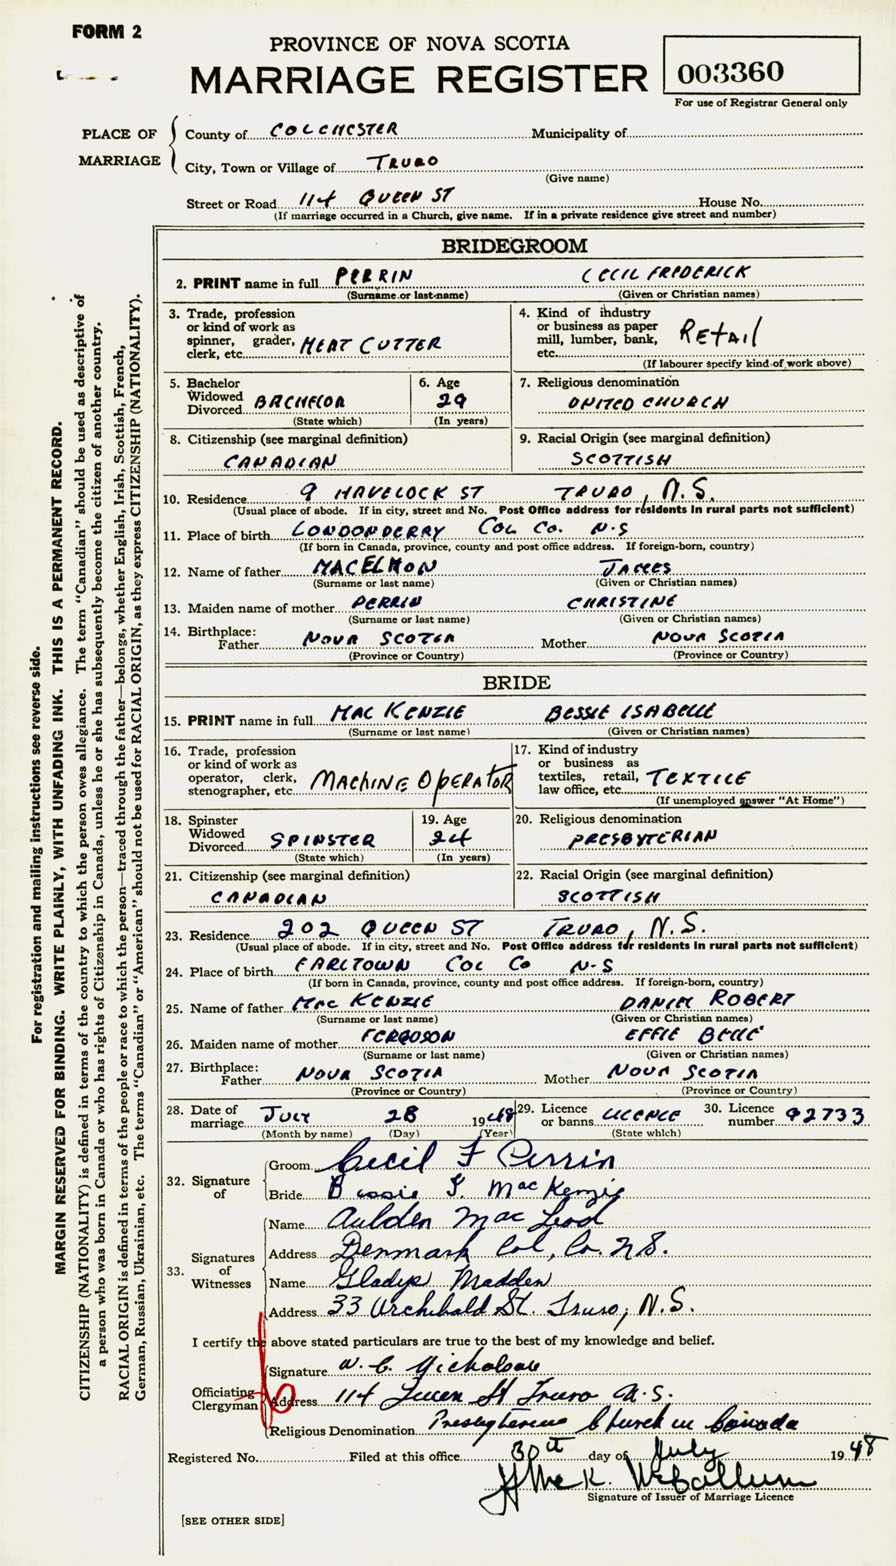 FORM 2
PROVINCE OF NOVA SCOTIA
MARRIAGE REGISTER
003360
For use of Registrar General only
PLACE OF MARRIAGE
County of COLCHESTER Municipality of
City, Town or Village of TRURO
(Give name)
Street or Road 114 QUEEN ST House No.
(If marriage occurred in a Church, give name. If in a private residence give street and number)
BRIDEGROOM
2. PRINT name in full PERRIN CECIL FREDERICK
(Surname or last name) (Given or Christian names)
3. Trade, profession or kind of work as spinner, grader, clerk, etc. MEAT CUTTER
4. Kind of industry or business as paper mill, lumber, bank, etc. RETAIL
(If labourer specify kind of work above)
5. Bachelor Widowed Divorced BACHELOR
(State which)
6. Age 29
(In years)
7. Religious denomination
UNITED CHURCH
8. Citizenship (see marginal definition)
CANADIAN
9. Racial Origin (see marginal definition)
SCOTTISH
10. Residence 9 HAVELOCK ST TRURO, N.S.
(Usual place of abode. If in city, street and No. Post Office address for residents in rural parts not sufficient)
11. Place of birth LONDONDERRY COL CO. N-S
(If born in Canada, province, county and post office address. If foreign-born, country)
12. Name of father MACELMON JAMES
(Surname or last name) (Given or Christian names)
13. Maiden name of mother PERRIN CHRISTINE
(Surname or last name) (Given or Christian names)
14. Birthplace:
Father NOVA SCOTIA Mother NOVA SCOTIA
(Province or Country) (Province or Country)
BRIDE
15. PRINT name in full MAC KENZIE BESSIE ISABELLE
(Surname or last name) (Given or Christian names)
16. Trade, profession or kind of work as operator, clerk, stenographer, etc. MACHINE OPERATOR
17. Kind of industry or business as textiles, retail, law office, etc. TEXTILE
(If unemployed answer "At Home")
18. Spinster Widowed Divorced SPINSTER
(State which)
19. Age 24
(In years)
20. Religious denomination
PRESBYTERIAN
21. Citizenship (see marginal definition)
CANADIAN
22. Racial Origin (see marginal definition)
SCOTTISH
23. Residence 202 QUEEN ST TRURO, N.S.
(Usual place of abode. If in city, street and No. Post Office address for residents in rural parts not sufficient)
24. Place of birth EARLTOWN COL CO N-S
(If born in Canada, province, county and post office address. If foreign-born, country)
25. Name of father MAC KENZIE DANIEL ROBERT
(Surname or last name) (Given or Christian names)
26. Maiden name of mother FERGUSON EFFIE BELLE
(Surname or last name) (Given or Christian names)
27. Birthplace:
Father NOVA SCOTIA Mother NOVA SCOTIA
(Province or Country) (Province or Country)
28. Date of marriage JULY 28 1948
(Month by name) (Day) (Year)
29. Licence or banns LICENCE
(State which)
30. Licence number 92733
32. Signature of
Groom Cecil F Perrin
Bride Bessie I. MacKenzie
33. Signatures of Witnesses
Name Aulden MacLeod
Address Denmark Col, Co. N.S.
Name Gladys Madden
Address 33 Archibald St. Truro, N.S.
I certify the above stated particulars are true to the best of my knowledge and belief.
Officiating Clergyman
Signature W. C. Nicholson
Address 114 Queen St Truro N.S.
Religious Denomination Presbyterian Church in Canada
Registered No. Filed at this office 30th day of July 1948
Signature of Issuer of Marriage Licence
[SEE OTHER SIDE]
For registration and mailing instructions see reverse side.
MARGIN RESERVED FOR BINDING. WRITE PLAINLY, WITH UNFADING INK. THIS IS A PERMANENT RECORD.
CITIZENSHIP (NATIONALITY) is defined in terms of the country to which the person owes allegiance. The term "Canadian" should be used as descriptive of
a person who was born in Canada or who has rights of Citizenship in Canada, unless he or she has subsequently become the citizen of another country.
RACIAL ORIGIN is defined in terms of the people or race to which the person—traced through the father—belongs, whether English, Irish, Scottish, French,
German, Russian, Ukrainian, etc. The terms "Canadian" or "American" should not be used for RACIAL ORIGIN, as they express CITIZENSHIP (NATIONALITY).